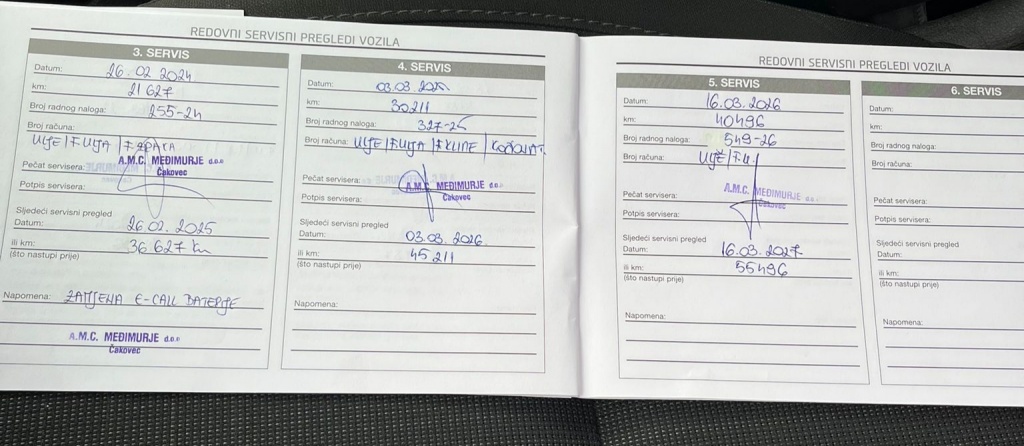 REDOVNI SERVISNI PREGLEDI VOZILA
3. SERVIS
Datum: 26.02 2024
km: 21 627
Broj radnog naloga: 255-24
Broj računa:
ULJE/F.ULJA/F.ZRAKA
Pečat servisera: A.M.C. MEĐIMURJE d.o.o
Čakovec
Potpis servisera:
Sljedeći servisni pregled
Datum: 26.02.2025
ili km: 36 627 km
(što nastupi prije)
Napomena: ZAMJENA E-CALL BATERIJE
A.M.C. MEĐIMURJE d.o.o
Čakovec
4. SERVIS
Datum: 03.03.2025
km: 30211
Broj radnog naloga: 327-25
Broj računa: ULJE/F.ULJA/F.KLIME/
Pečat servisera: A.M.C. MEĐIMURJE d.o.o
Čakovec
Potpis servisera:
Sljedeći servisni pregled
Datum: 03.03.2026
ili km: 45 211
(što nastupi prije)
Napomena:
REDOVNI SERVISNI PREGLEDI VOZILA
5. SERVIS
Datum: 16.03.2026
km: 40496
Broj radnog naloga: 549-26
Broj računa: ULJE/F.U./
Pečat servisera: A.M.C. MEĐIMURJE d.o.o
Čakovec
Potpis servisera:
Sljedeći servisni pregled
Datum: 16.03.2027
ili km: 55496
(što nastupi prije)
Napomena:
6. SERVIS
Datum:
km:
Broj radnog naloga:
Broj računa:
Pečat servisera:
Potpis servisera:
Sljedeći servisni pregled
Datum:
ili km:
(što nastupi prije)
Napomena: